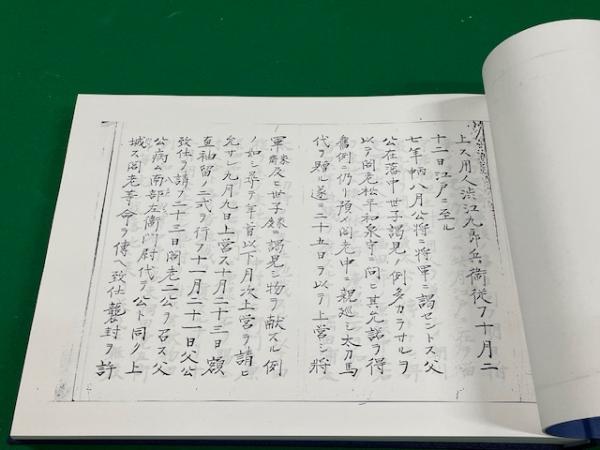 上ス用人澁江九郎兵衞従フ十月二
十二日江戸ニ至ル
七年丙八月公将ニ将軍ニ謁セントス父
公在落中世子謁見ノ例多カラサルヲ
以テ閣老松平和泉守ニ問ヒ其允諾ヲ得
旧例ニ仍リ預メ閣老中ニ親巡シ太刀馬
代ヲ贈ル遂ニ二十五日ヲ以テ上営シ将
軍家及ヒ世子ニ謁見シ物ヲ献スル例
ノ如シ尋テ年首以下月次上営ヲ請ヒ
允サレ九月九日上営ス十月二十三日額
直袖留ノ二式ヲ行フ十一月二十一日父公
致仕ヲ請フ二十三日閣老二公ヲ召ス父
公病ム南部左衞門尉代テ公ト同ク上
城ス閣老等命ヲ傳ヘ致仕襲封ヲ許